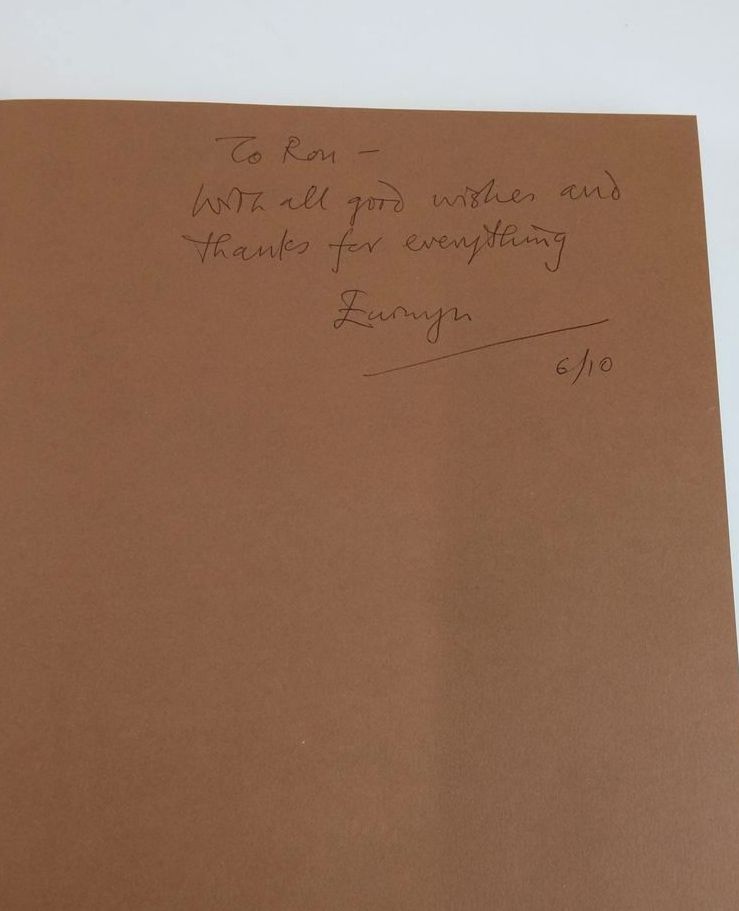 To Ron –
With all good wishes and
thanks for everything
Eurwyn
6/10